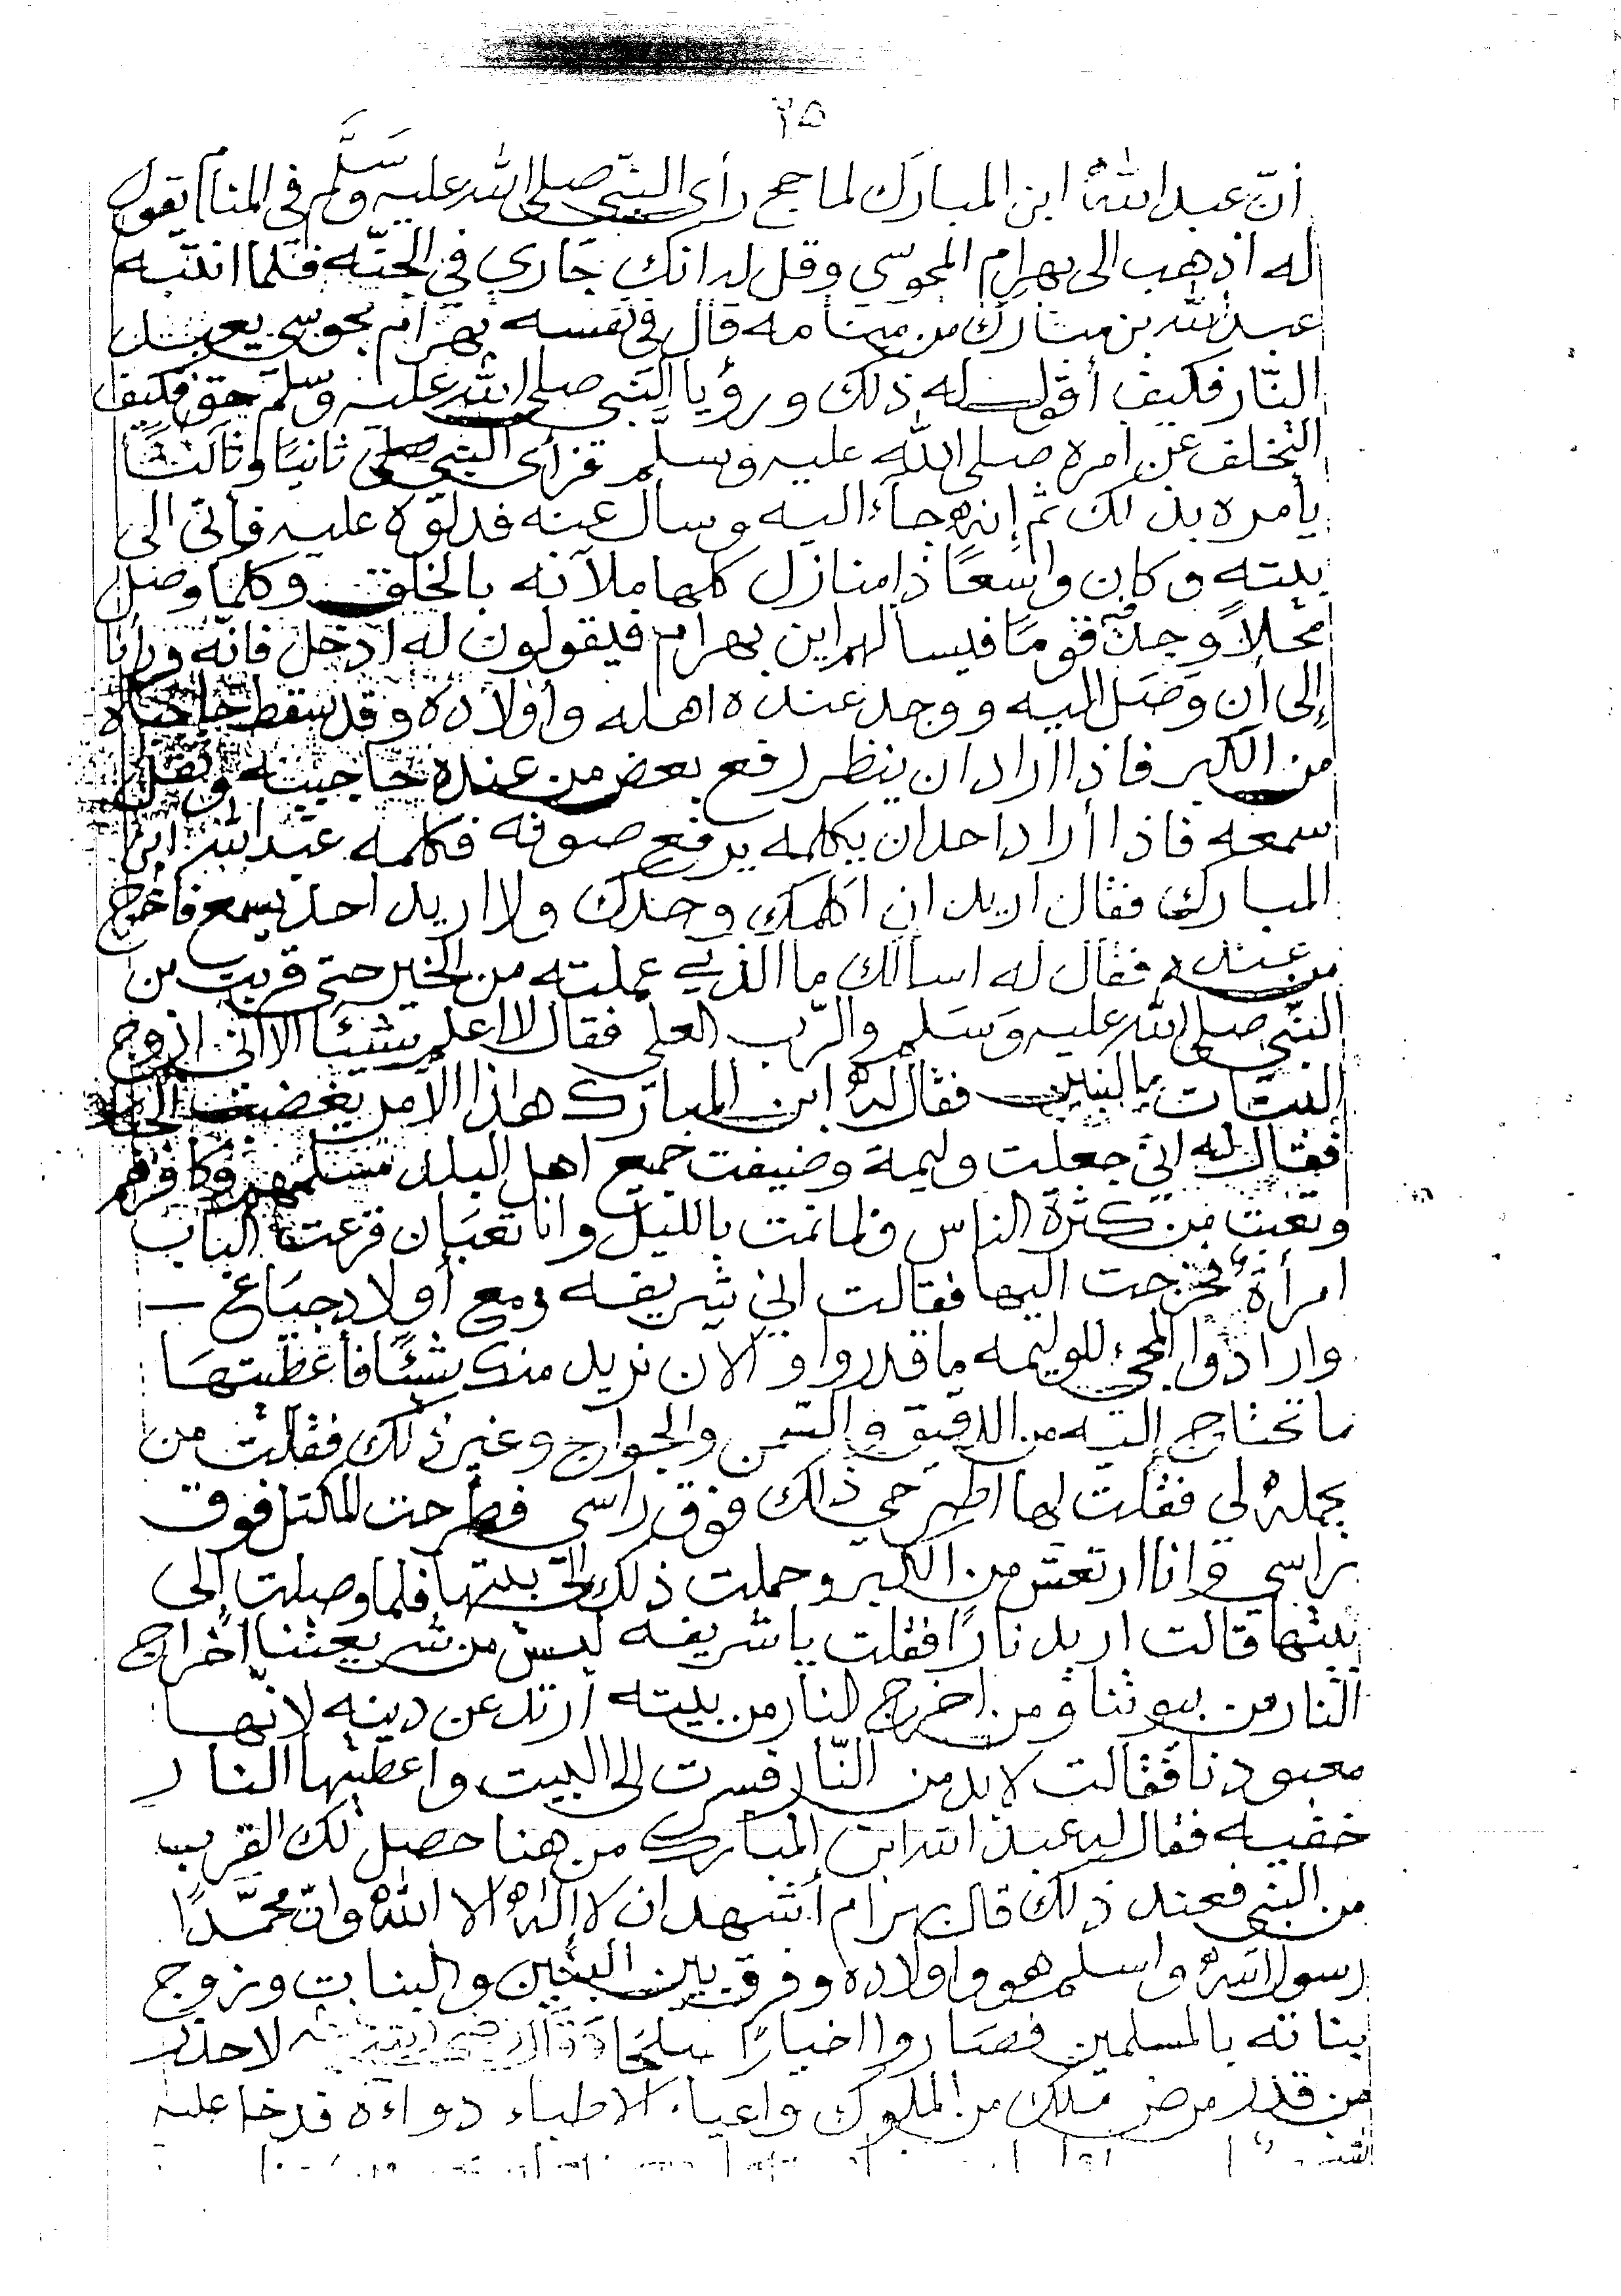 ٢٥
أنّ عبد الله ابن المبارَك لما حج رأى النبّي صلى الله عليه وسَلَّم في المنام يقول
له اذهب الى بهرام المجوسي وقل له انك جَاري في الجنّه فلما انتبه
عبد الله بن مبارك من منامه قال في نفسه بهرام مجوسي يعبد
النّار فكيف أقول له ذلك ورؤيا النبي صلى الله عليه وسلم حق فكيف
التخلف عن امره صلى الله عليه وسلّم فرأى النبي صلى ثانيًا وثالثًا
يأمره بذلك ثم إنه جآء اليه وسال عنه فدلوه عليه فأتى الى
بيته وكان واسعًا ذا منازل كلها ملآنه بالخلق وكلما وصل
محلاً وجد قومًا فيسالهم اين بهرام فيقولون له ادخل فانه ورانا
إلى أن وصَل اليه ووجد عنده اهله وأولاده وقد سقط حاجباه
من الكبر فاذا اراد ان ينظر رفع بعض من عنده حاجبيه وثقل
سمعه فاذا أراد احد ان يكلمه يرفع صوته فكلمه عبد الله ابن
المبارك فقال اريد ان اكلمك وحدك ولا اريد احد يسمع فاخرج
من عنده فقال له اسالك ما الذي عملته من الخير حتى قربت من
النبّي صلى الله عليه وَسَلم والرّب العلي فقال لا اعلم شيئًا الا اني ازوج
البنات بالبنين فقال له ابن المبارك هاذا الامر يغضب
فقال له اني جعلت وليمة وضيفت جميع اهل البلد مسلمهم وكافرهم
وتعبت من كثرة الناس فلما نمت بالليل وانا تعبَان قرعت الباب
امرأة فخرجت اليها فقالت اني شريفه ومعي أولاد جياع
وارادوا المجيء للوليمه ما قدروا والآن نريد منك شيئًا فأعطيتهَا
ما تحتاج إليه من الدقيق والسمن والحوايج وغير ذلك فقلت من
يحمله لي فقلت لها اطرحي ذالك فوق راسي فطرحت المكتل فوق
راسي وانا ارتعش من الكبر وحملت ذلك الى بيتها فلما وصلت إلى
بيتها قالت اريد نارًا فقلت يا شريفه ليس من شريعتنا اخراج
النّار من بيوتنا ومن اخرج النار من بيته ارتد عن دينه لانّها
معبودنا فقالت لابد من النّار فسرت الى البيت واعطيتها النار
خفيه فقال له عبد الله ابن المبارك من هنا حصل لك القرب
من النبي فعند ذلك قال بهرام أشهد ان لا إله الا الله وانّ محمّدًا
رسول الله واسلم هو واولاده وفرق بين البنين والبنات وزوج
بناته بالمسلمين فصَاروا اخيارًا صلحَا لا حذر
من قدر مرض ملك من الملوك واعياء الاطباء دواءه فدخل عليه